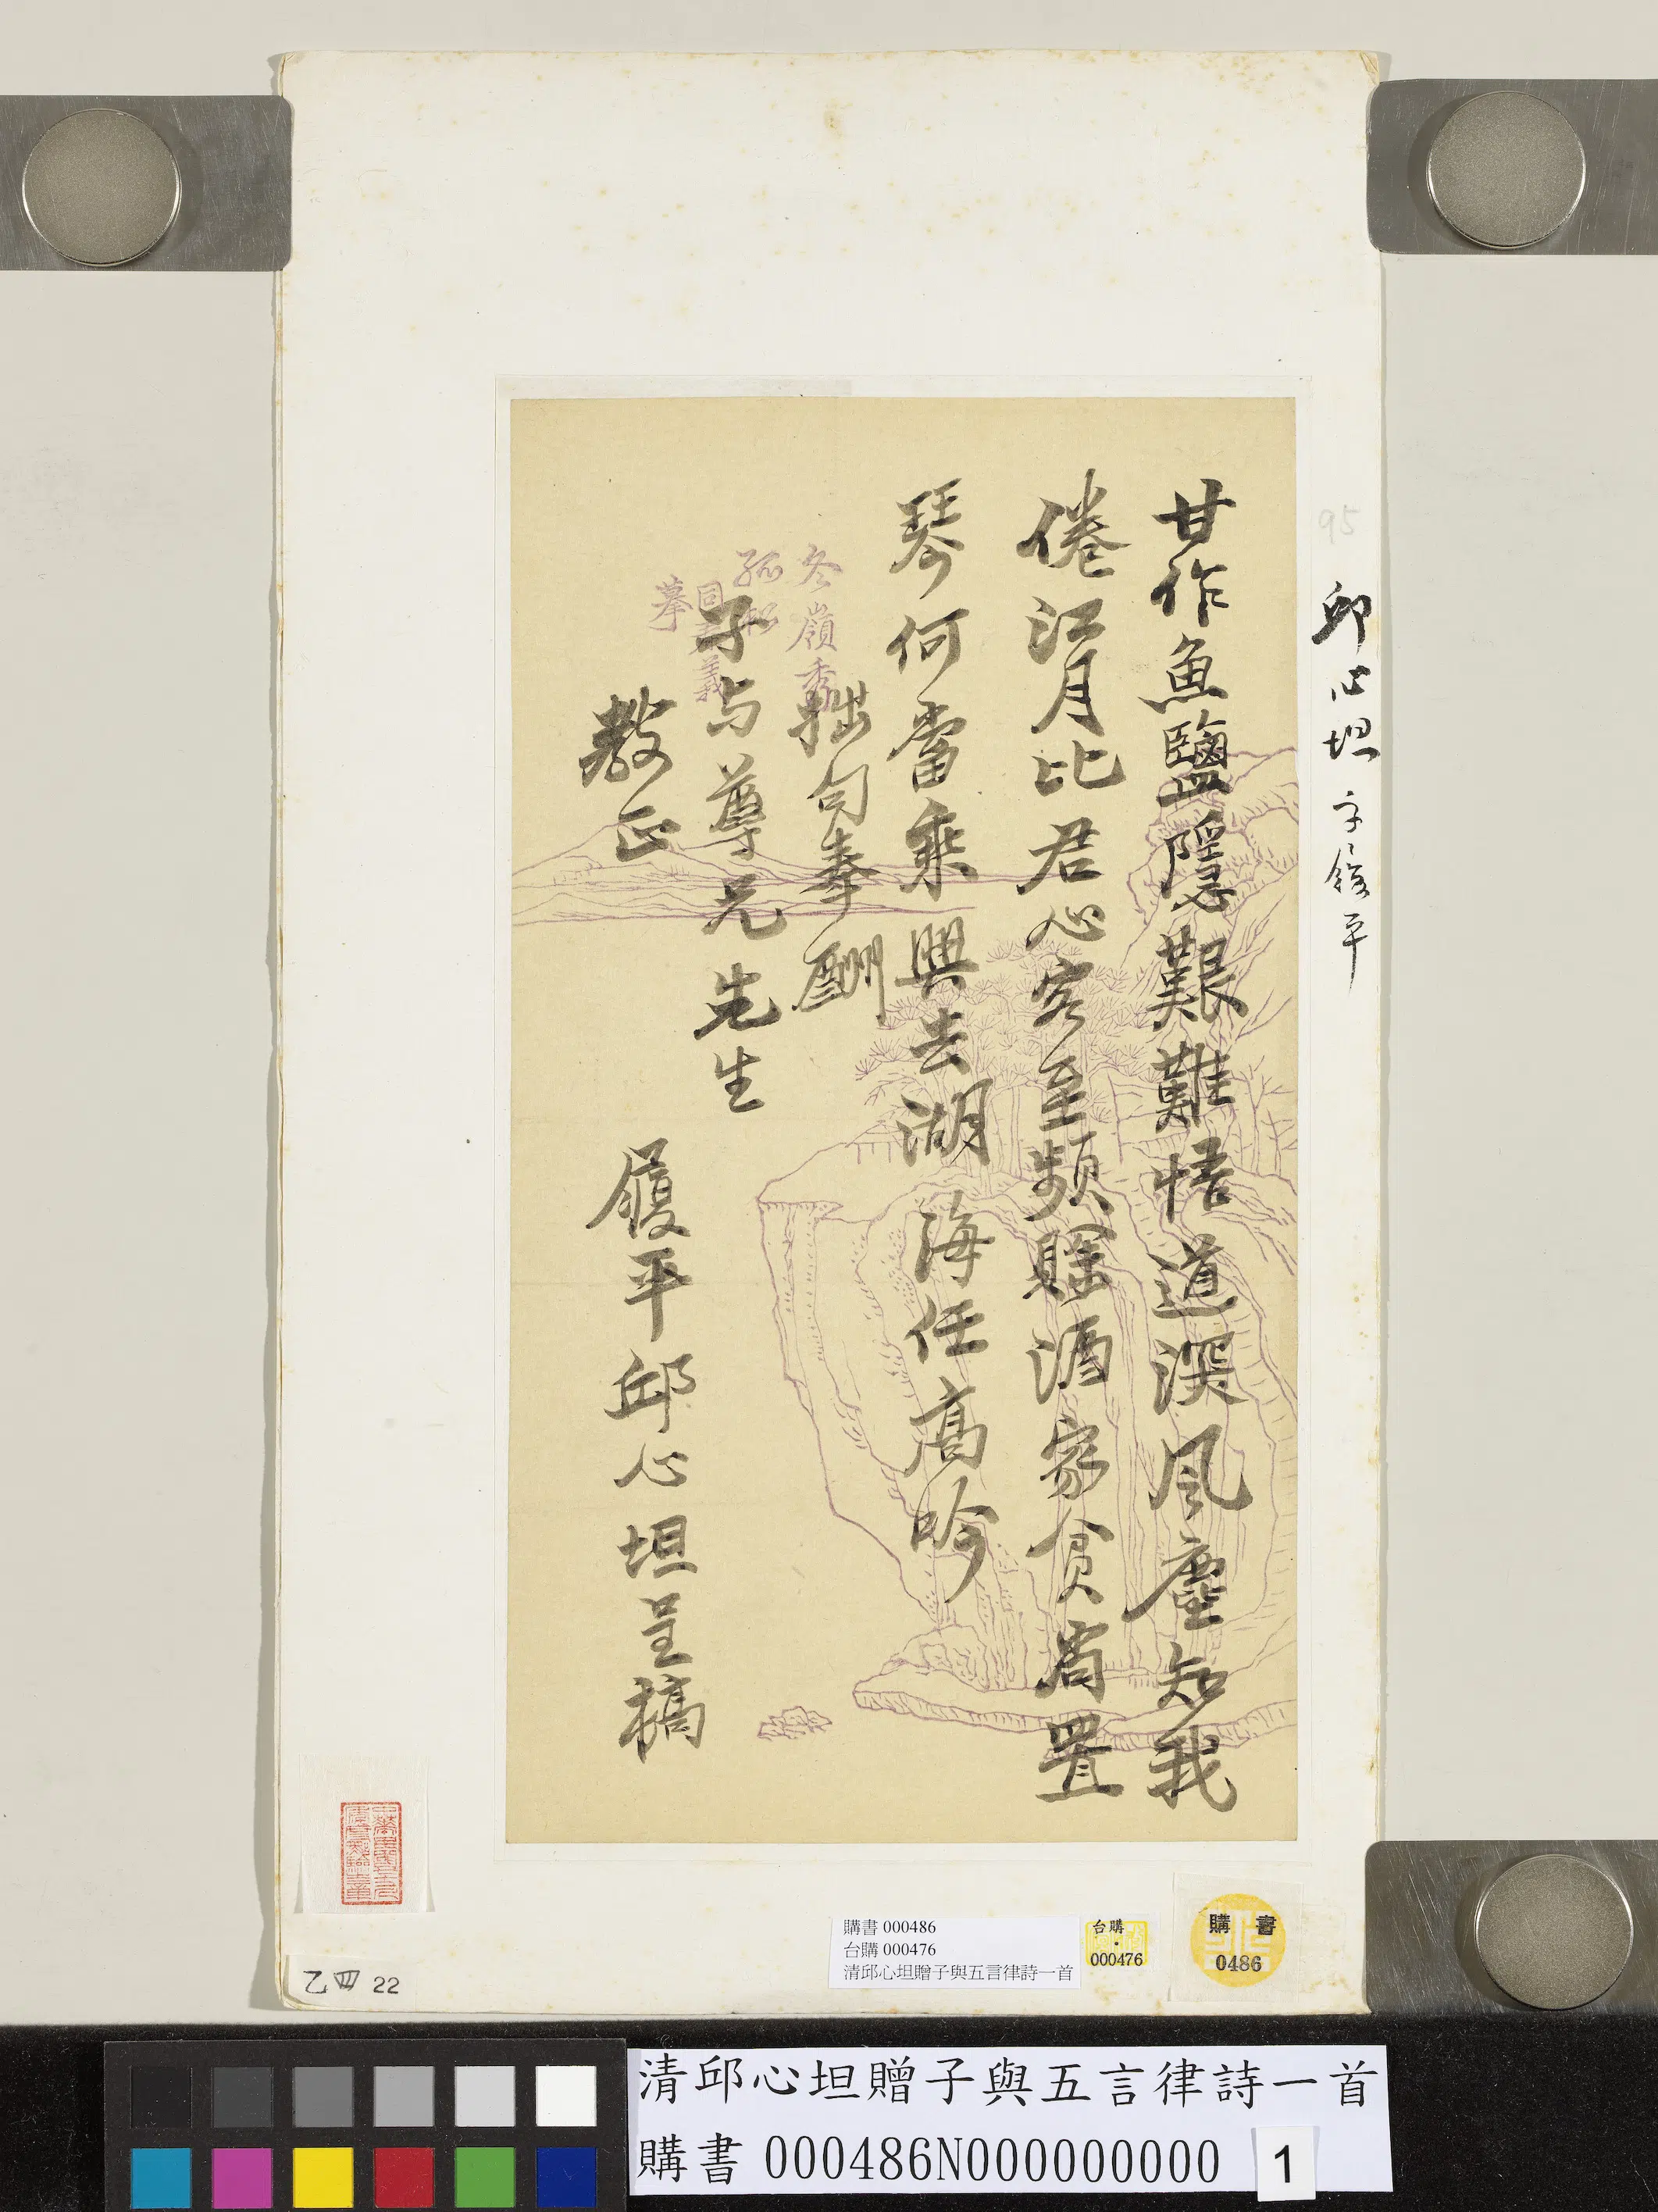 甘作魚鹽隱艱難悟道深風塵知我
倦江月比君心客至頻賖酒家貧肯置
琴何當乘興去湖海任高吟
拙句奉酬
子与尊兄先生
教正
履平邱心坦呈稿
冬嶺秀
孤松
同義
摹
95
邱心坦字履平
購書 000486
台購 000476
清邱心坦贈子與五言律詩一首
台購
000476
購書
0486
乙四 22
清邱心坦贈子與五言律詩一首
購書 000486N000000000
1